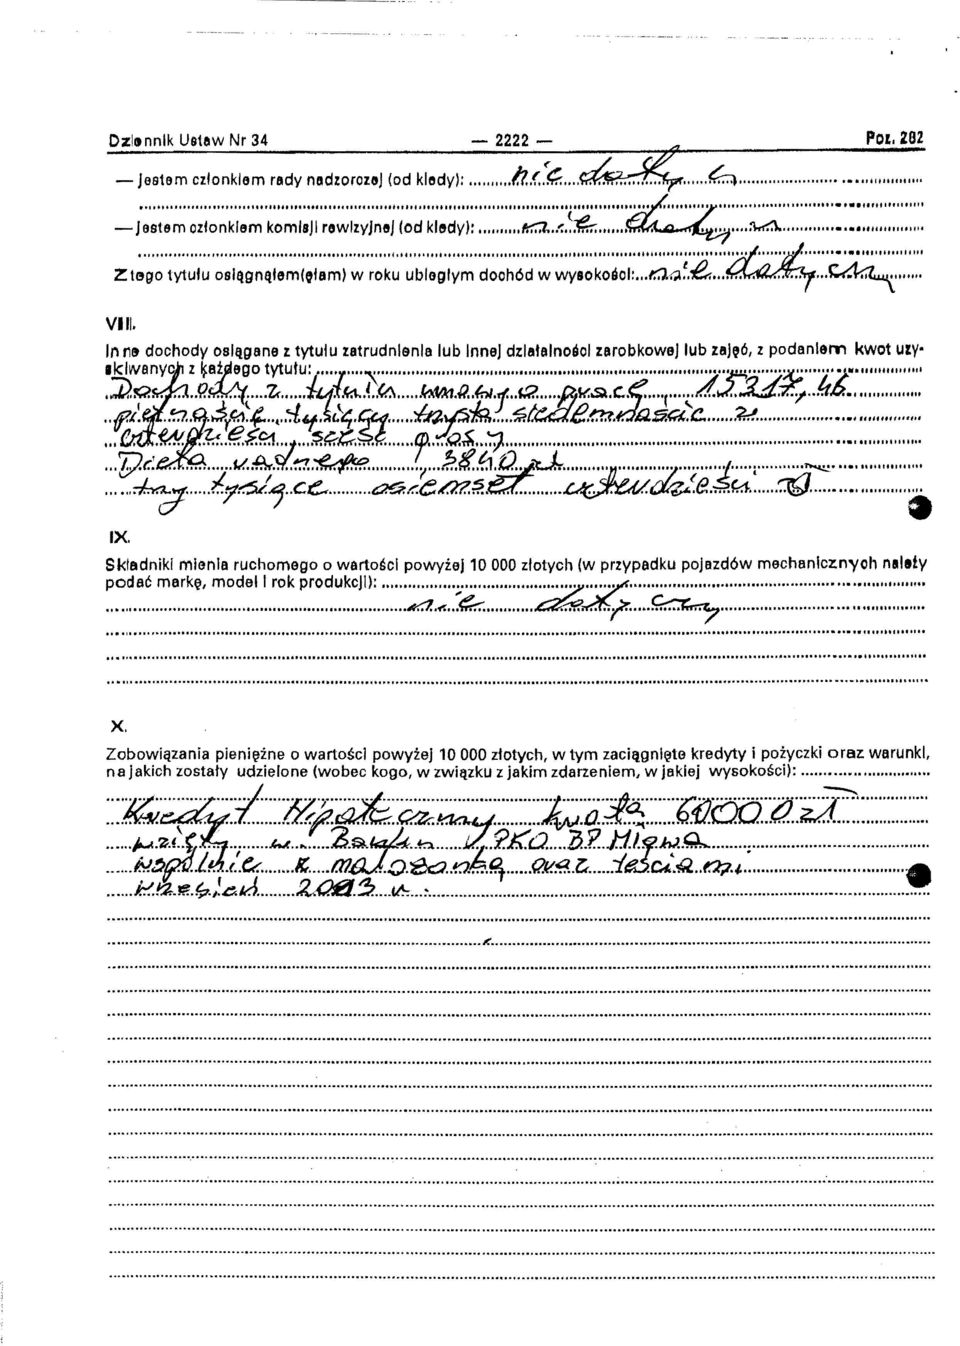 Dziennik Ustaw Nr 34 — 2222 — Poz. 282
— jestem członkiem rady nadzorczej (od kiedy): nie dotyczy
— jestem członkiem komisji rewizyjnej (od kiedy): nie dotyczy
Z tego tytułu osiągnąłem(ęłam) w roku ubiegłym dochód w wysokości: nie dotyczy
VIII.
Inne dochody osiągane z tytułu zatrudnienia lub innej działalności zarobkowej lub zajęć, z podaniem kwot uzy-
skiwanych z każdego tytułu:
Dochody z tytułu umowy o pracę, 15317,46
piętnaście tysięcy trzysta siedemnaście zł
czterdzieści sześć groszy
Dieta radnego 3840 zł
trzy tysiące osiemset czterdzieści zł
IX.
Składniki mienia ruchomego o wartości powyżej 10 000 złotych (w przypadku pojazdów mechanicznych należy
podać markę, model i rok produkcji):
nie dotyczy
X.
Zobowiązania pieniężne o wartości powyżej 10 000 złotych, w tym zaciągnięte kredyty i pożyczki oraz warunki,
na jakich zostały udzielone (wobec kogo, w związku z jakim zdarzeniem, w jakiej wysokości):
Kredyt Hipoteczny kwota 60000 zł
wzięty w Banku PKO BP Mława
wspólnie z małżonką oraz teściami
wrzesień 2003 r.